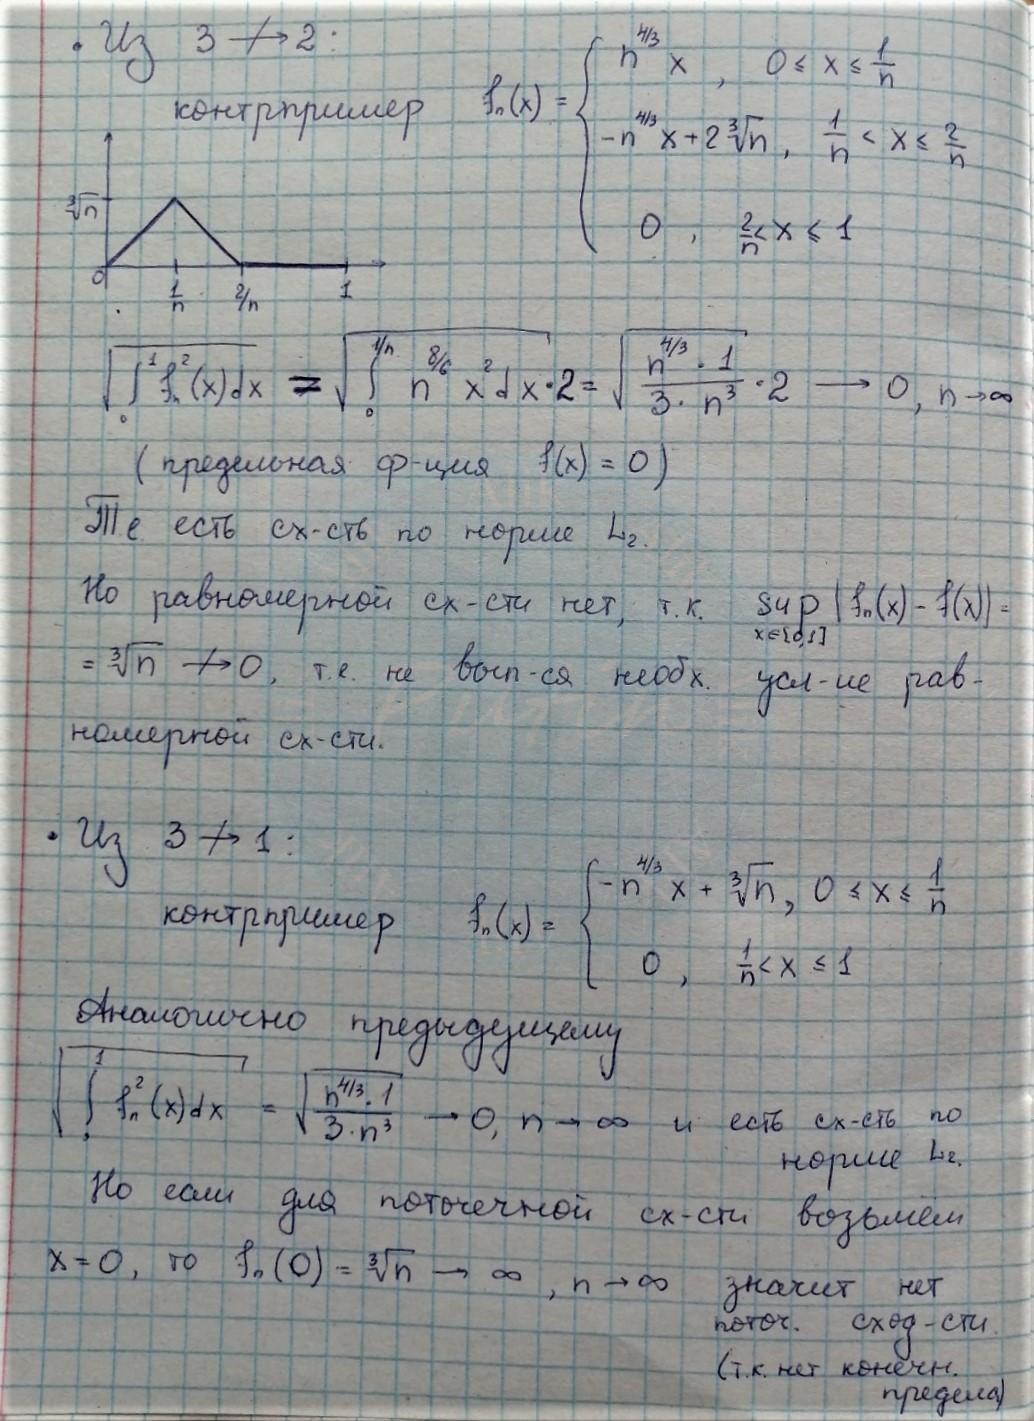 • Из 3 ↛ 2:
контрпример fₙ(x) = { n^{4/3} x , 0 ≤ x ≤ 1/n
-n^{4/3} x + 2∛n , 1/n < x ≤ 2/n
0 , 2/n < x ≤ 1
∛n
0 1/n 2/n 1
√(∫₀¹ fₙ²(x)dx) = √(∫₀^{1/n} n^{8/6} x² dx·2 = √(n^{4/3}·1 / 3·n³)·2 → 0, n→∞
(предельная ф-ция f(x) = 0)
Те есть сх-сть по норме L₂.
Но равномерной сх-сти нет, т.к. sup_{x∈[0,1]} |fₙ(x) - f(x)| =
= ∛n ↛ 0, т.е. не вып-ся необх. усл-ие рав-
номерной сх-сти.
• Из 3 ↛ 1:
контрпример fₙ(x) = { -n^{4/3} x + ∛n, 0 ≤ x ≤ 1/n
0 , 1/n < x ≤ 1
Аналогично предыдущему
√(∫₀¹ fₙ²(x)dx) = √(n^{4/3}·1 / 3·n³) → 0, n → ∞ и есть сх-сть по
норме L₂.
Но если для поточечной сх-сти возьмём
x = 0, то fₙ(0) = ∛n → ∞ , n → ∞ значит нет
поточ. сход-сти.
(т.к. нет конечн.
предела)